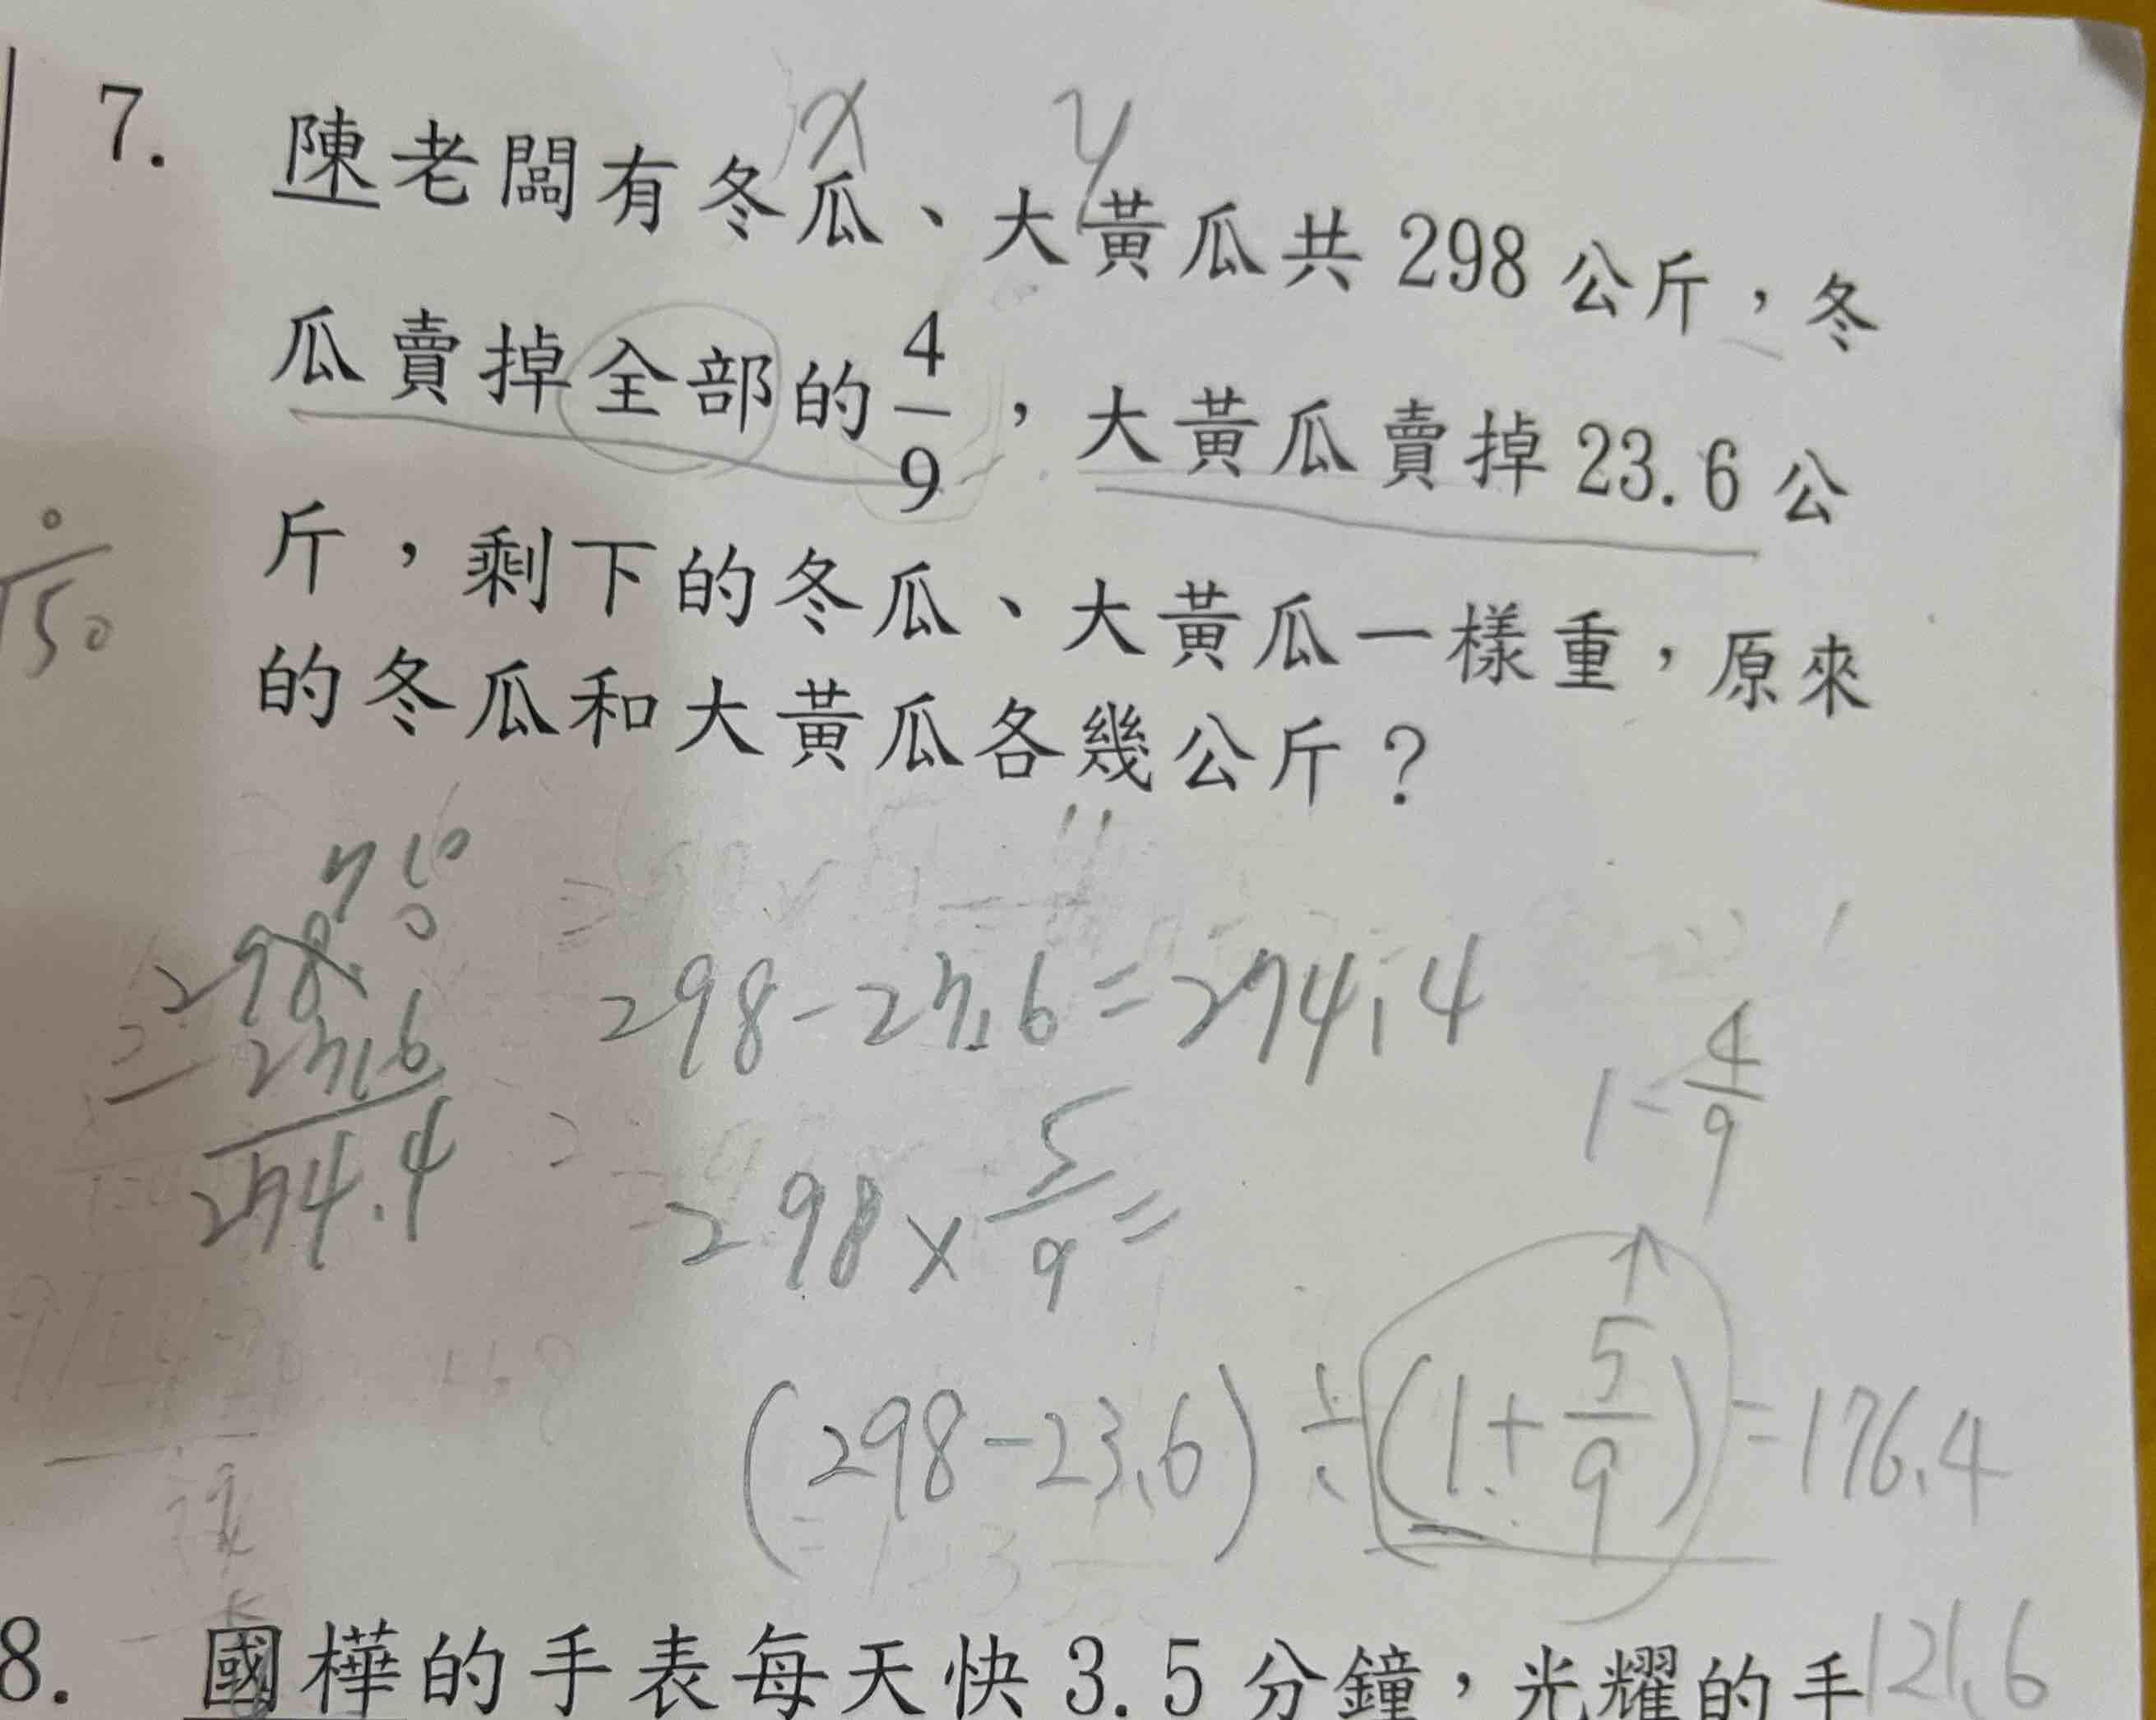 x y
7. 陳老闆有冬瓜、大黃瓜共 298 公斤，冬
瓜賣掉全部的 4/9 ，大黃瓜賣掉 23.6 公
斤，剩下的冬瓜、大黃瓜一樣重，原來
的冬瓜和大黃瓜各幾公斤？
0
150
7 10
298.0
- 23.6
274.4
298-23.6=274.4
1-4/9
298×5/9=
(298-23.6)÷(1+5/9)=176.4
121.6
8. 國樺的手表每天快 3.5 分鐘，光耀的手